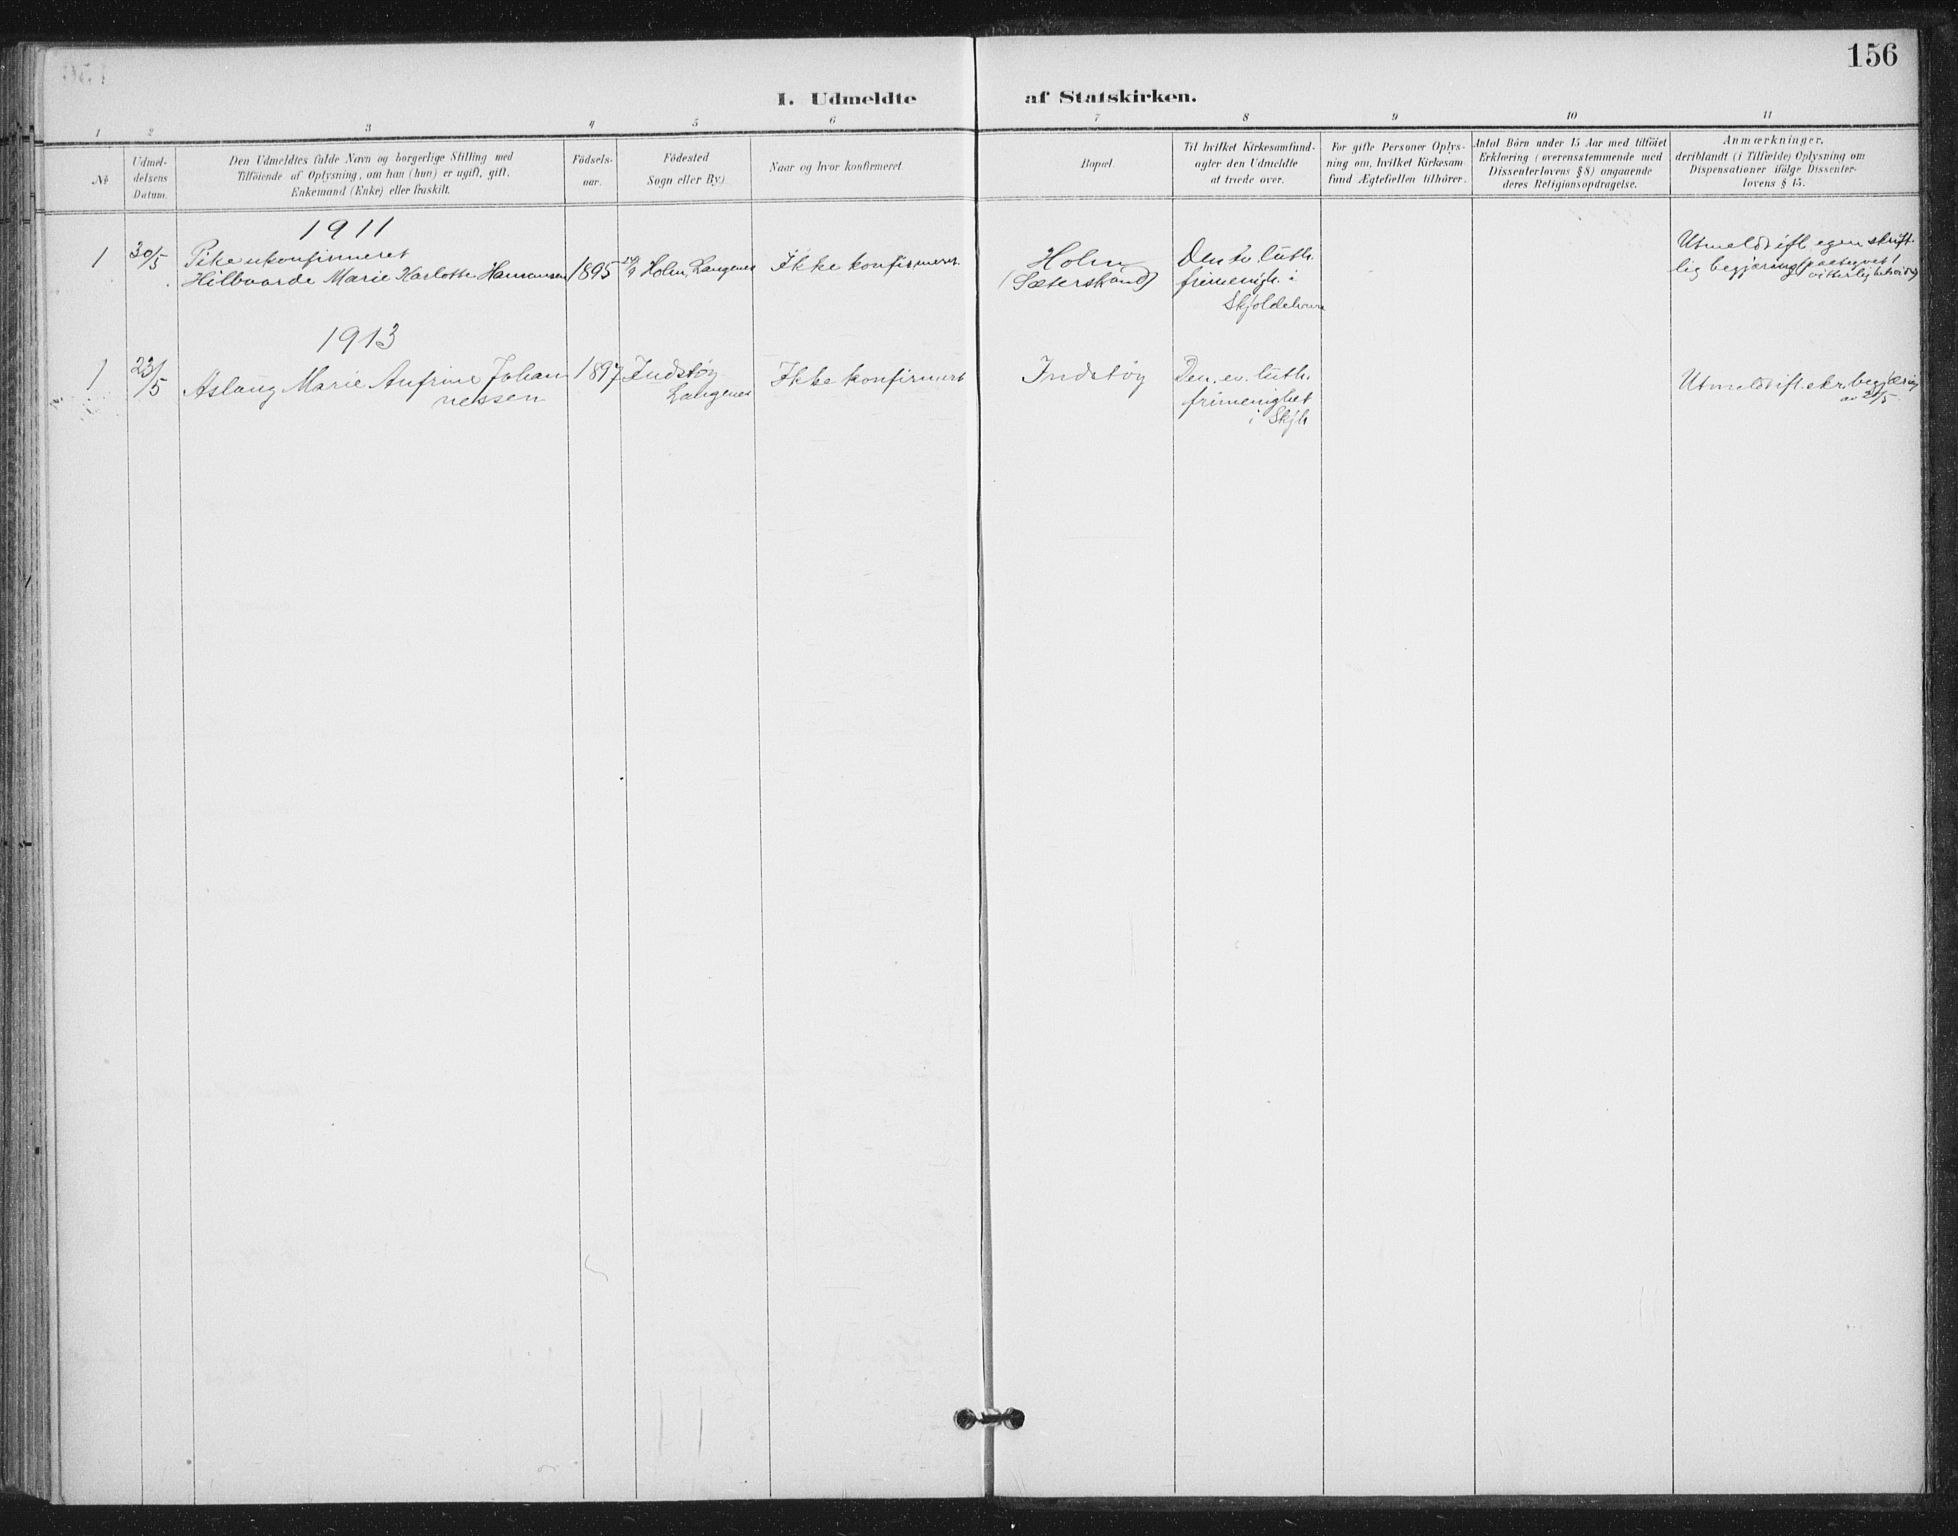 156
I. Udmeldte af Statskirken.
1 2 3 4 5 6 7 8 9 10 11
№
Udmel-
delsens
Datum.
Den Udmeldtes fulde Navn og borgerlige Stilling med
Tilföiende af Oplysning, om han (hun) er ugift, gift,
Enkemand (Enke) eller fraskilt.
Födsels-
aar.
Födested
Sogn eller By)
Naar og hvor konfirmeret.
Bopæl.
Til hvilket Kirkesamfund-
agter den Udmeldte
at træde over.
For gifte Personer Oplys-
ning om, hvilket Kirkesam-
fund Ægtefællen tilhörer.
Antal Börn under 15 Aar med tilföiet
Erklæring (overensstemmende med
Dissenterlovens § 8) angaaende
deres Religionsopdragelse.
Anmærkninger,
deriblandt (i Tilfælde) Oplysning om
Dispensationer ifölge Dissenter-
lovens § 15.
1911
1 30/5
Pike ukonfirmeret
Hilbaarde Marie Karlotte Hansen
1895
Holm, Langenes
Ikke konfirmeret.
Holm
(Sæterstrand)
Den ev. luth.
frimenigh. i
Skjoldehavn
Utmeldt ifl. egen skrift-
lig begjæring (paategnet
vitterlighet
1913
1 23/5
Aslaug Marie Anfrine Johan
nessen
1897
Indstøy
Langenes
Ikke konfirmert
Indstøy
Den. ev. luth.
frimenighet
i Skjh
Utmeldt ifl. skr. begjæring
av 21/5.